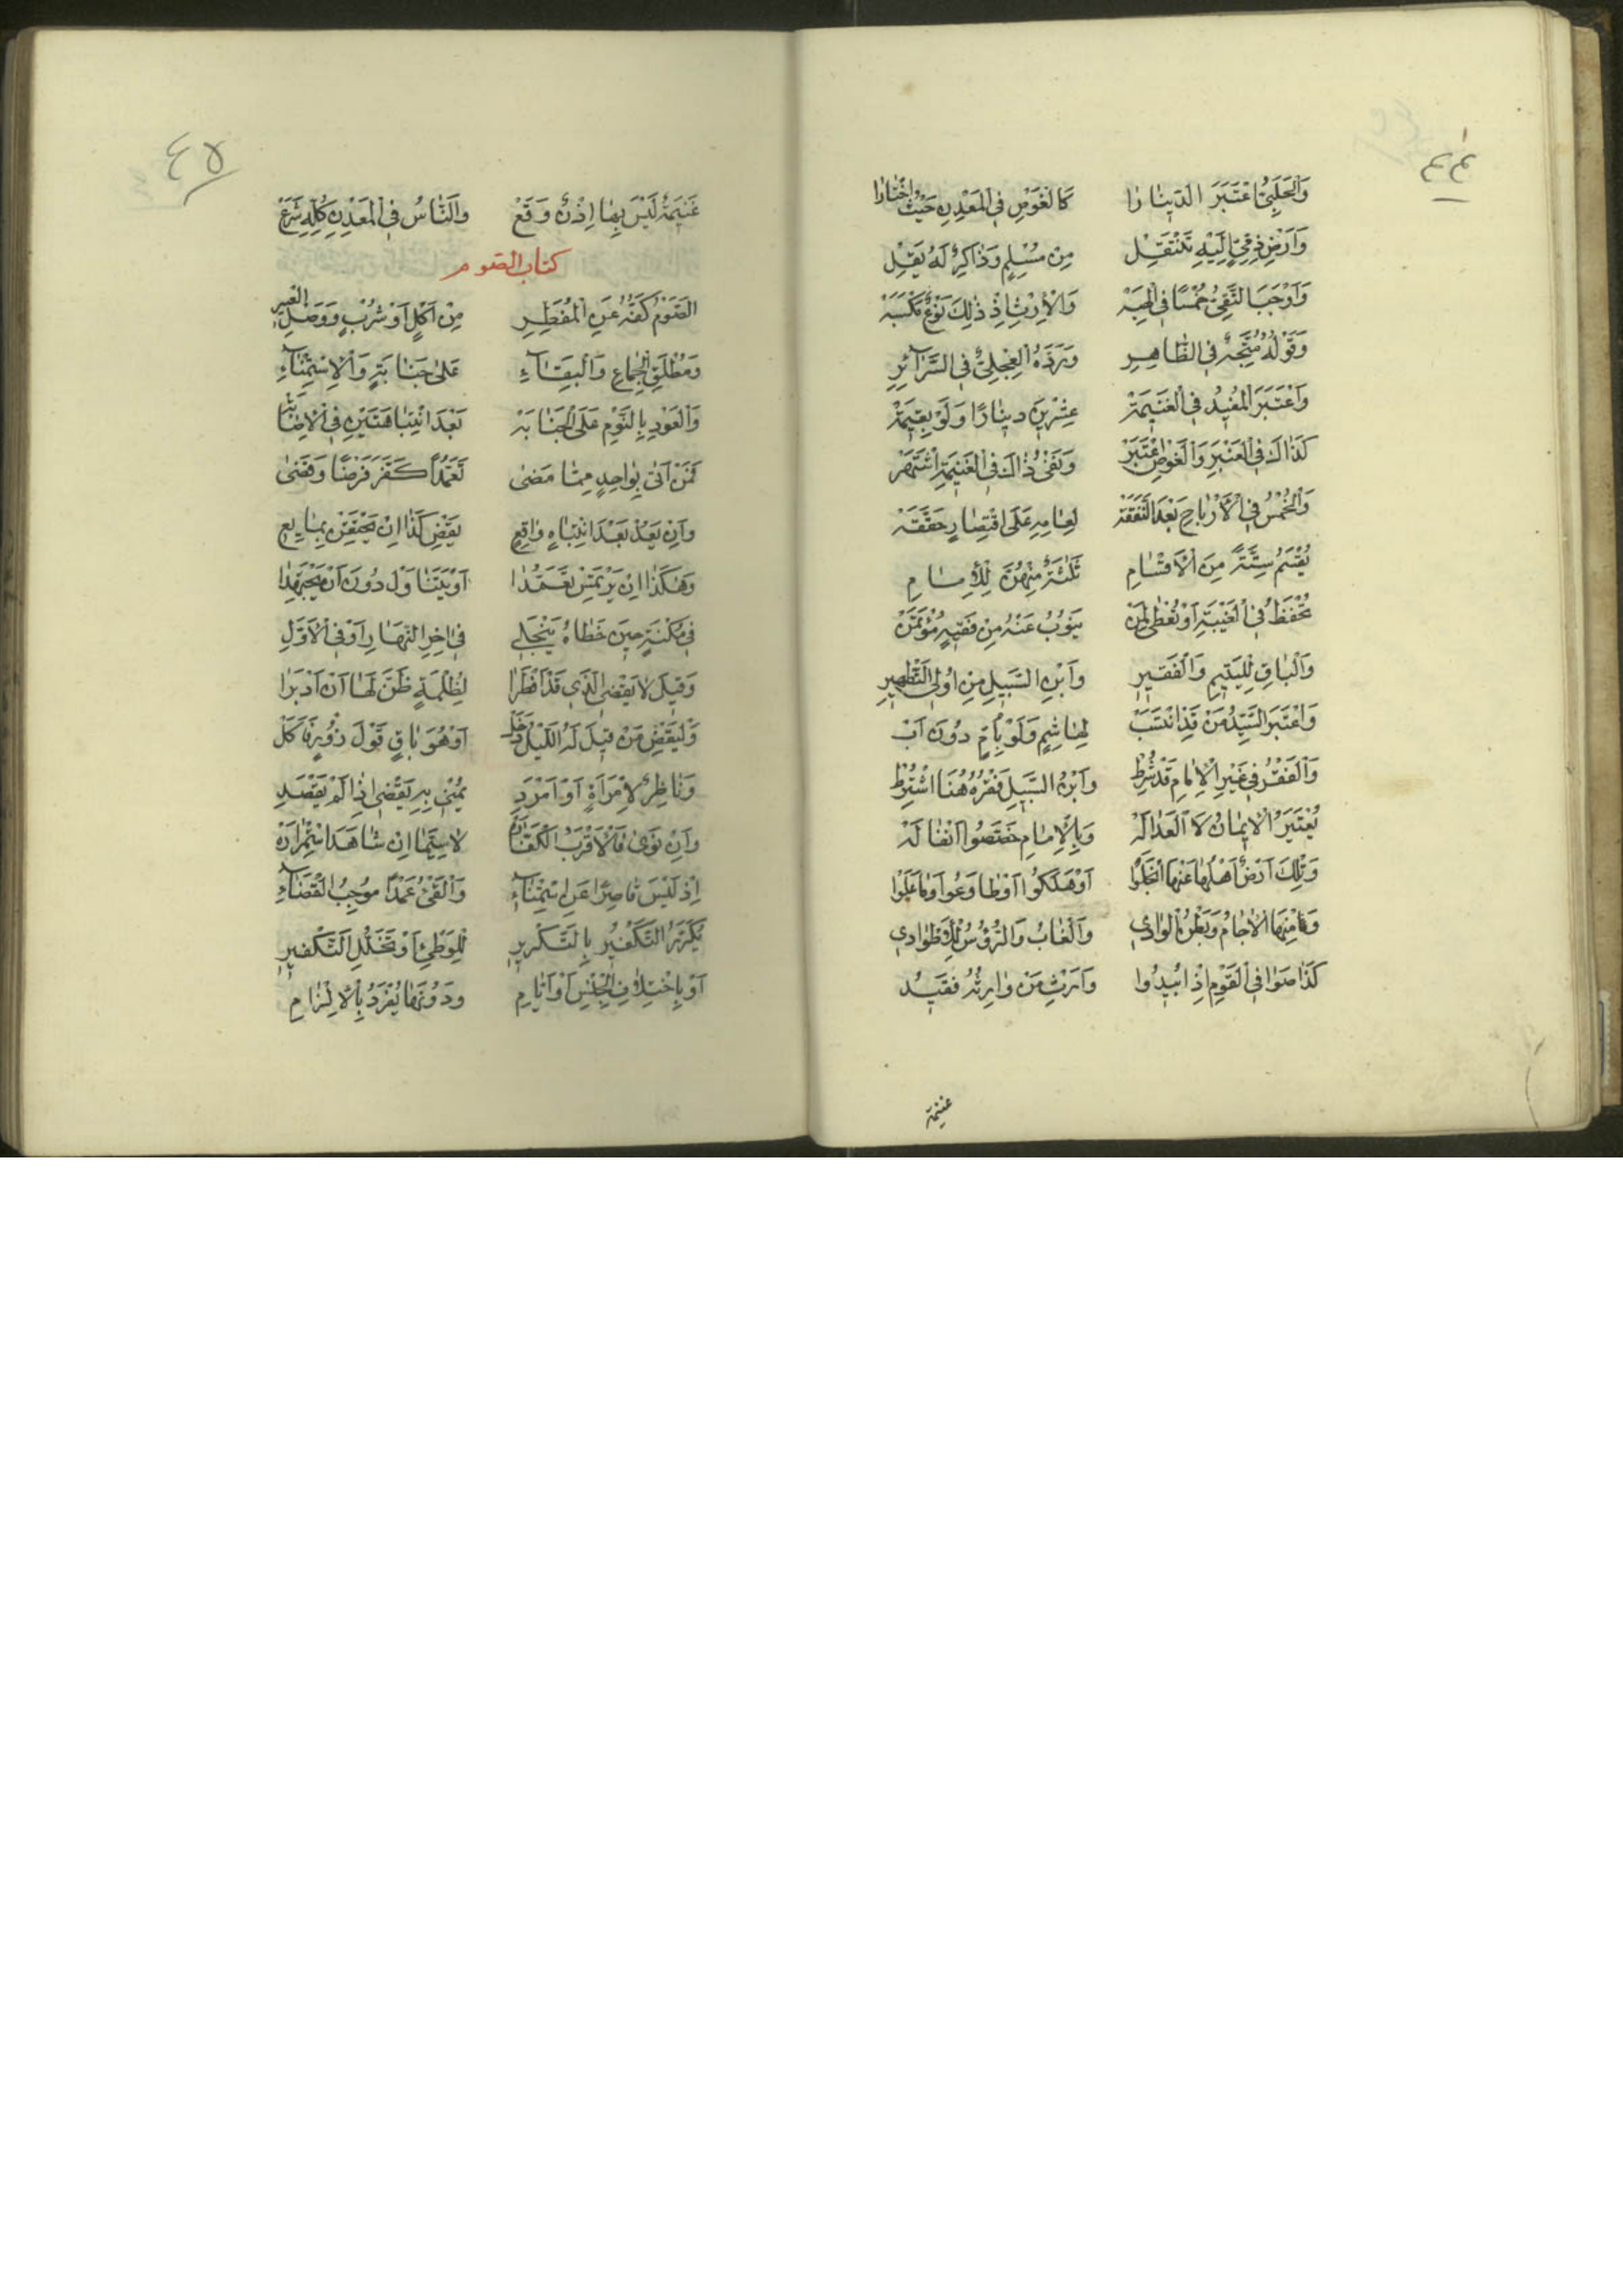 ٤٤
وَالْحَلَبِيُّ اعْتَبَرَ الدِّينَارَا كَالْغَوْصِ فِي الْمَعْدِنِ حَيْثُ اخْتَارَا
وَاَرْضِ ذِمِّيٍّ اِلَيْهِ تَنْتَقِلْ مِنْ مُسْلِمٍ وَذَاكِرٌ لَهُ يَقِلْ
وَاَوْجَبَ التَّقِيُّ خُمْسًا فِي الْهِبَهْ وَالْاِرْثِ اِذْ ذٰلِكَ نَوْعُ مَكْسَبَهْ
وَقَوْلُهُ مُتَّجِهٌ فِي الظَّاهِرِ وَرَدَّهُ الْعِجْلِيُّ فِي السَّرَائِرِ
وَاعْتَبَرَ الْمُفِيدُ فِي الْغَنِيمَةْ عِشْرِينَ دِينَارًا وَلَوْ بِقِيمَةْ
كَذَاكَ فِي الْعَنْبَرِ وَالْغَوْصِ اعْتَبَرْ وَنَفْيُ ذَاكَ فِي الْغَنِيمَةِ اشْتَهَرْ
وَالْخُمْسُ فِي الْاَرْبَاحِ بَعْدَ النَّفَقَةْ لِعَامِهِ عَلَى اقْتِصَارٍ حَقَّقَهْ
يُقْسَمُ سِتَّةً مِنَ الْاَقْسَامِ ثَلٰثَةٌ مِنْهُنَّ لِلْاِمَامِ
تُحْفَظُ فِي الْغَيْبَةِ اَوْ تُعْطٰى لِمَنْ يَنُوبُ عَنْهُ مِنْ فَقِيهٍ مُؤْتَمَنْ
وَالْبَاقِ لِلْيَتِيمِ وَالْفَقِيرِ وَابْنِ السَّبِيلِ مِنْ اُولِي التَّطْهِيرِ
وَاعْتَبَرَ السَّيِّدُ مَنْ قَدِ انْتَسَبْ لِهَاشِمٍ وَلَوْ بِاُمٍّ دُونَ اَبْ
وَالْفَقْرُ فِي غَيْرِ الْاِمَامِ قَدْ شُرِطْ وَابْنُ السَّبِيلِ فَقْرُهُ هُنَا اشْتُرِطْ
يُعْتَبَرُ الْاِيمَانُ لَا الْعَدَالَهْ وَبِالْاِمَامِ خَصَّصُوا اَنْفَالَهْ
وَتِلْكَ اَرْضٌ اَهْلُهَا عَنْهَا انْجَلَوْا اَوْ هَلَكُوا اَوْ طَاوَعُوا
وَالْاٰجَامُ وَبَطْنُ الْوَادِي وَالْغَابُ وَالرُّؤُسُ
كَذَا صَوَافِي الْقَوْمِ اِذْ اُبِيدُوا وَاِرْثِ مَنْ وَارِثُهُ فَقِيدُ
غنيمة
٤٥
غَنِيمَةٌ لَيْسَ بِهَا اِذْنٌ وَقَعْ وَالنَّاسُ فِي الْمَعْدِنِ كُلِّهِ شَرَعْ
كتاب الصوم
الصَّوْمُ كَفُّهُ عَنِ الْمُفَطِّرِ مِنْ اَكْلٍ اَوْ شُرْبٍ وَوَصْلِ
وَمُطْلَقِ الْجِمَاعِ وَالْبَقَاءِ عَلٰى جَنَابَةٍ وَالْاِسْتِمْنَاءِ
وَالْعَوْدِ بِالنَّوْمِ عَلَى الْجَنَابَهْ بَعْدَ انْتِبَاهَتَيْنِ فِي
فَمَنْ اَتٰى بِوَاحِدٍ مِمَّا مَضٰى تَعَمُّدًا كَفَّرَ فَرْضًا وَقَضٰى
وَاِنْ يَعُدْ بَعْدَ انْتِبَاهٍ وَاقِعِ يَقْضِ كَذَا اِنْ يَحْتَقِنْ بِمَايِعِ
وَهٰكَذَا اِنْ يَرْتَمِسْ تَعَمُّدَا اَوْ يَتَنَاوَلْ دُونَ اَنْ يَجْتَهِدَا
فِي مُكْنَةٍ حِينَ خَطَاهُ يَنْجَلِي فِي اٰخِرِ النَّهَارِ اَوْ فِي الْاَوَّلِ
وَقِيلَ لَا يَقْضِي الَّذِي قَدْ اَفْطَرَا لِظُلْمَةٍ ظَنَّ لَهَا اَنْ اَدْبَرَا
وَلْيَقْضِ مَنْ قِيلَ لَهُ اللَّيْلُ دَخَلْ اَوْ هُوَ بَاقٍ قَوْلَ زُورٍ فَاَكَلْ
وَنَاظِرٌ لِامْرَاَةٍ اَوْ اَمْرَدِ يُمْنِي بِهِ يَقْضِي اِذَا لَمْ يَقْصِدِ
وَاِنْ نَوٰى فَالْاَقْرَبُ الْكَفَّارَهْ لَا سِيَّمَا اِنْ شَاهَدَ اسْتِمْرَارَهْ
اِذْ لَيْسَ قَاصِرًا عَنِ اسْتِمْنَاءِ وَالْقَيْءُ عَمْدًا مُوجِبُ الْقَضَاءِ
يُكَرَّرُ التَّكْفِيرُ بِالتَّكْرِيرِ لِلْوَطْئِ اَوْ تَخَلُّلِ التَّكْفِيرِ
اَوْ بِاخْتِلَافِ الْجِنْسِ اَوْ اَيَّامِ وَدُونَهَا يُفْرَدُ بِالْاِلْزَامِ